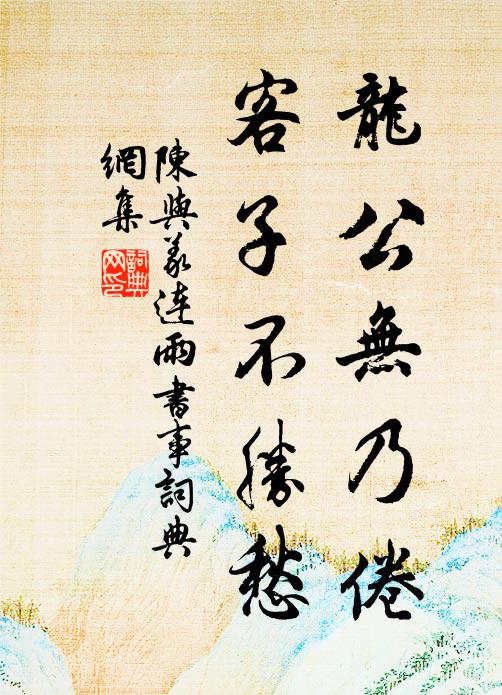 龍公無乃倦
客子不勝愁
陳與義連雨書事詞典
網集
詞典
网印